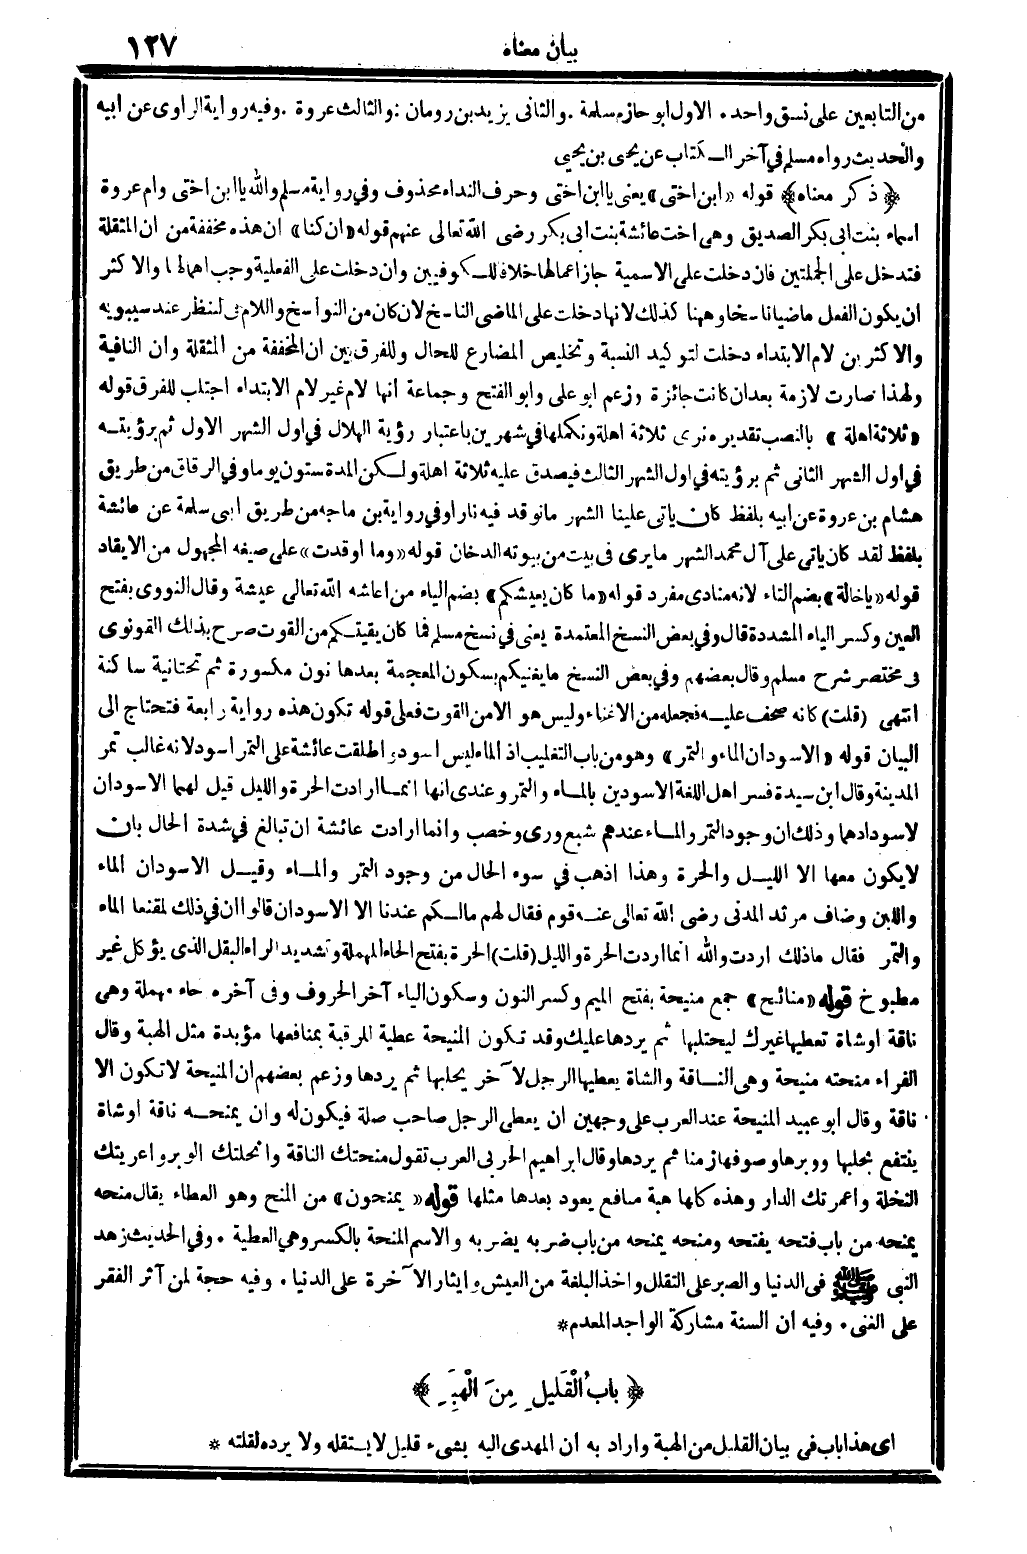 بيان معناه ١٢٧
من التابعين على نسق واحد. الاول ابو حازم سلمة. والثانى يزيد بن رومان: والثالث عروة. وفيه رواية الراوى عن ابيه
والحديث رواه مسلم في آخر الكتاب عن يحيى بن يحيى
﴿ذكر معناه﴾ قوله «ابن اختى» يعنى يا ابن اختى وحرف النداء محذوف وفي رواية مسلم والله يا ابن اختى وام عروة
اسماء بنت ابى بكر الصديق وهى اخت عائشة بنت ابى بكر رضى الله تعالى عنهم قوله «ان كنا» ان هذه مخففة من ان المثقلة
فتدخل على الجملتين فان دخلت على الاسمية جاز اعمالها خلافا للكوفيين وان دخلت على الفعلية وجب اهمالها والاكثر
ان يكون الفعل ماضيا ناسخا وههنا كذلك لانها دخلت على الماضى الناسخ لان كان من النواسخ واللام فى لننظر عند سيبويه
والاكثرين لام الابتداء دخلت لتوكيد النسبة وتخليص المضارع للحال وللفرق بين ان المخففة من المثقلة وان النافية
ولهذا صارت لازمة بعد ان كانت جائزة وزعم ابو على وابو الفتح وجماعة انها لام غير لام الابتداء اجتلب للفرق قوله
«ثلاثة اهلة» بالنصب تقديره نرى ثلاثة اهلة ونكملها في شهرين باعتبار رؤية الهلال في اول الشهر الاول ثم برؤيته
في اول الشهر الثانى ثم برؤيته في اول الشهر الثالث فيصدق عليه ثلاثة اهلة ولكن المدة ستون يوما وفي الرقاق من طريق
هشام بن عروة عن ابيه بلفظ كان ياتى علينا الشهر مانوقد فيه نارا وفي رواية بن ماجه من طريق ابى سلمة عن عائشة
بلفظ لقد كان ياتى على آل محمد الشهر مايرى فى بيت من بيوته الدخان قوله «وما اوقدت» على صيغه المجهول من الايقاد
قوله «ياخالة» بضم التاء لانه منادى مفرد قوله «ما كان يعيشكم» بضم الياء من اعاشه الله تعالى عيشة وقال النووى بفتح
العين وكسر الياء المشددة قال وفي بعض النسخ المعتمدة يعنى في نسخ مسلم فما كان يقيتكم من القوت صرح بذلك القونوى
فى مختصر شرح مسلم وقال بعضهم وفي بعض النسخ مايغنيكم بسكون المعجمة بعدها نون مكسورة ثم تحتانية ساكنة
انتهى (قلت) كانه صحف عليه فجعله من الاغناء وليس هو الا من القوت فعلى قوله تكون هذه رواية رابعة فتحتاج الى
البيان قوله «الاسودان الماء والتمر» وهو من باب التغليب اذ الماء ليس اسود واطلقت عائشة على التمر اسود لانه غالب تمر
المدينة وقال ابن سيدة فسر اهل اللغة الاسودين بالماء والتمر وعندى انها انما ارادت الحرة والليل قيل لهما الاسودان
لاسودادهما وذلك ان وجود التمر والماء عندهم شبع ورى وخصب وانما ارادت عائشة ان تبالغ في شدة الحال بان
لايكون معها الا الليل والحرة وهذا اذهب في سوء الحال من وجود التمر والماء وقيل الاسودان الماء
واللبن وضاف مرثد المدنى رضى الله تعالى عنه قوم فقال لهم مالكم عندنا الا الاسودان قالوا ان في ذلك لمقنعا الماء
والتمر فقال ماذلك اردت والله انما اردت الحرة والليل (قلت) الحرة بفتح الحاء المهملة وتشديد الراء البقل الذى يؤكل غير
مطبوخ قوله «منائح» جمع منيحة بفتح الميم وكسر النون وسكون الياء آخر الحروف وفى آخره حاء مهملة وهى
ناقة او شاة تعطيها غيرك ليحتلبها ثم يردها عليك وقد تكون المنيحة عطية للرقبة بمنافعها مؤبدة مثل الهبة وقال
الفراء منحته منيحة وهى الناقة والشاة يعطيها الرجل لآخر يحلبها ثم يردها وزعم بعضهم ان المنيحة لا تكون الا
ناقة وقال ابو عبيد المنيحة عند العرب على وجهين ان يعطى الرجل صاحب صلة فيكون له وان يمنحه ناقة اوشاة
ينتفع بحلبها ووبرها وصوفها زمنا ثم يردها وقال ابراهيم الحربى العرب تقول منحتك الناقة وانحلتك الوبر واعريتك
النخلة واعمرتك الدار وهذه كلها هبة منافع يعود بعدها مثلها قوله «يمنحون» من المنح وهو العطاء يقال منحه
يمنحه من باب فتحه يفتحه ومنحه يمنحه من باب ضربه يضربه والاسم المنحة بالكسر وهى العطية. وفي الحديث زهد
النبى ﷺ فى الدنيا والصبر على التقلل واخذ البلغة من العيش وايثار الآخرة على الدنيا. وفيه حجة لمن آثر الفقر
على الغنى. وفيه ان السنة مشاركة الواجد المعدم*
﴿بابُ الْقَلِيلِ مِنَ الْهِبَةِ﴾
اى هذا باب فى بيان القليل من الهبة واراد به ان المهدى اليه بشىء قليل لا يستقله ولا يرده لقلته *